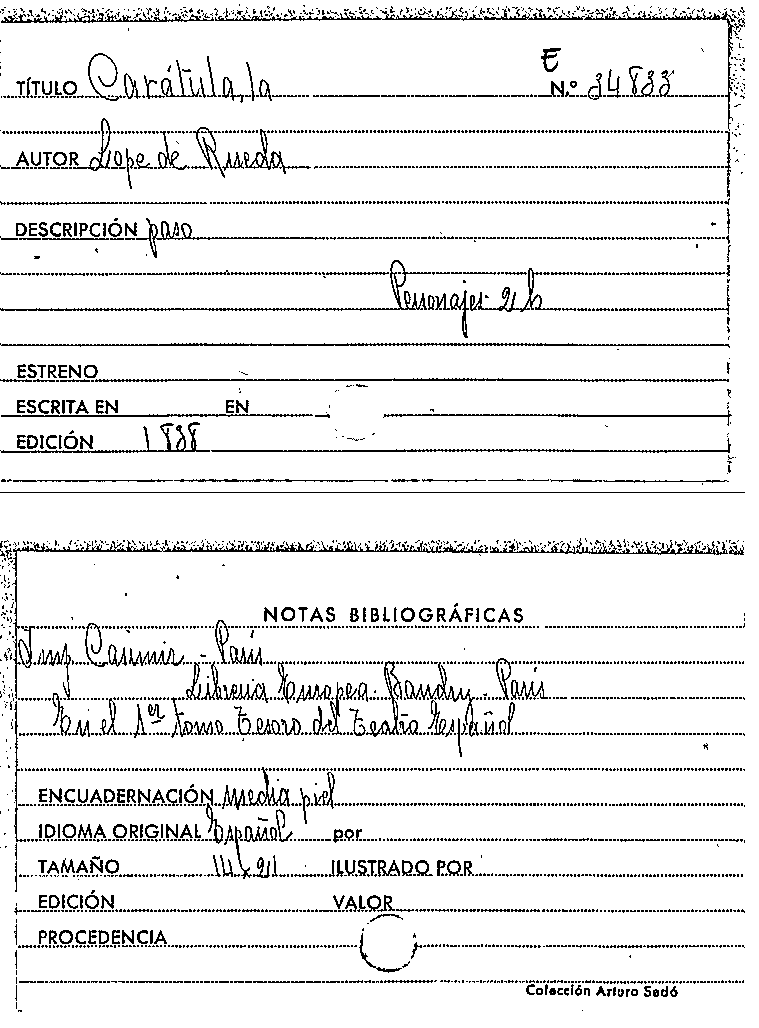 E
TÍTULO Carátula, la N.º 34833
AUTOR Lope de Rueda
DESCRIPCIÓN paso
Personajes 2 h
ESTRENO
ESCRITA EN EN
EDICIÓN 1838
NOTAS BIBLIOGRÁFICAS
Imp Casimir - París
Libreria Europea. Baudry - París
En el 1er tomo Tesoro del Teatro Español
ENCUADERNACIÓN media piel
IDIOMA ORIGINAL Español por
TAMAÑO 14 x 21 ILUSTRADO POR
EDICIÓN VALOR
PROCEDENCIA
Colección Arturo Sedó